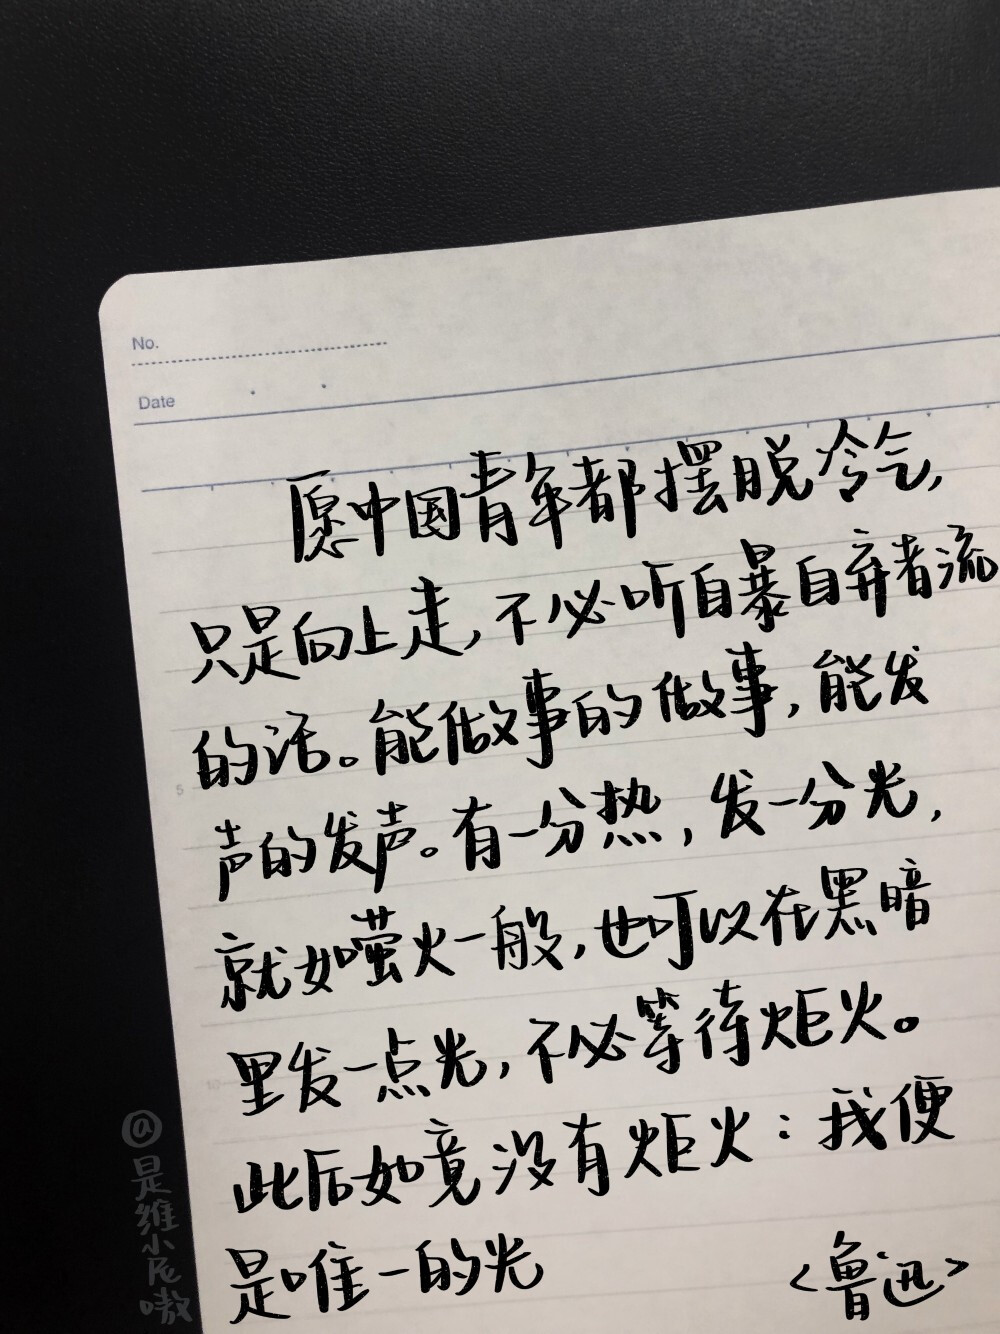 No.
Date
愿中国青年都摆脱冷气，
只是向上走，不必听自暴自弃者流
的话。能做事的做事，能发
5
声的发声。有一分热，发一分光，
就如萤火一般，也可以在黑暗
里发一点光，不必等待炬火。
10
此后如竟没有炬火：我便
是唯一的光
<鲁迅>
@是维小尼嗷